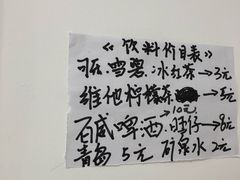 《饮料价目表》
可乐.雪碧.冰红茶→3元
维他柠檬茶→5元
→10元
百威啤酒.旺仔→8元
青岛 5元 矿泉水 2元